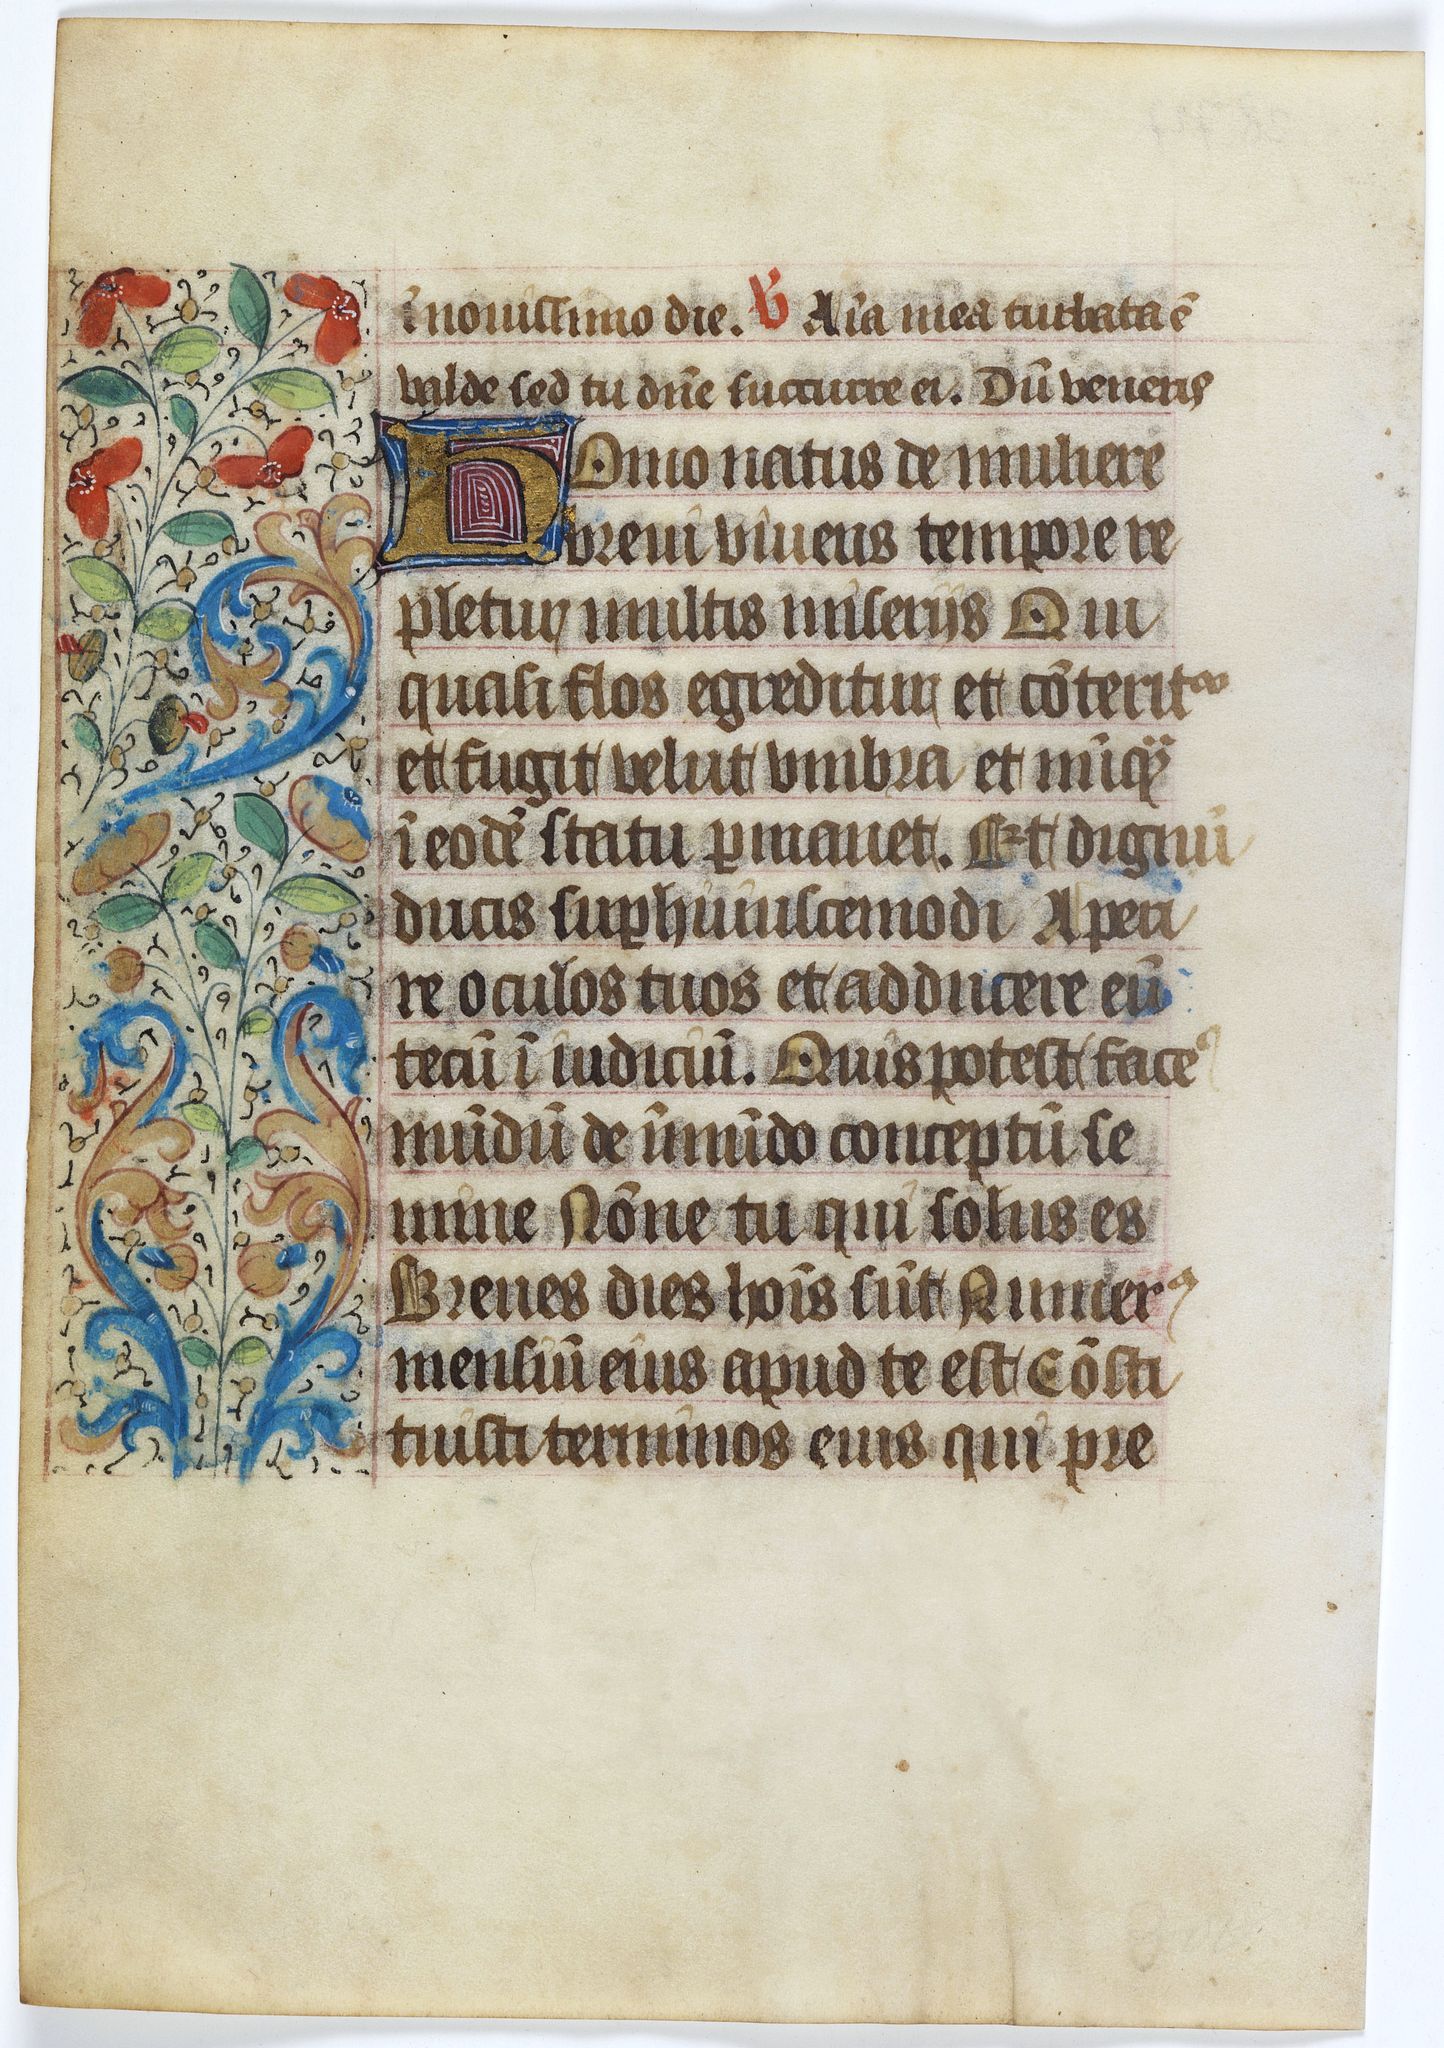 ī nouissimo die. ℣ Aīa mea turbata ē
valde sed tu dn̄e succurre ei. Dū veneris
HOmo natus de muliere
breui viuens tempore re
pletur multis miserijs Qui
quasi flos egreditur et cōterit᷑
et fugit velut vmbra et nūqꝫ
ī eodē statu ꝑmanet. Et dignū
ducis suꝑ huiuscemodi Aperi
re oculos tuos et adducere eū
tecū ī iudiciū. Quis potest face᷑
mūdū de īmūdo conceptū se
mine Nōne tu qui solus es
Breues dies hoīs sūt Numer᷒
mensiū eius apud te est Cōsti
tuisti terminos eius qui pre